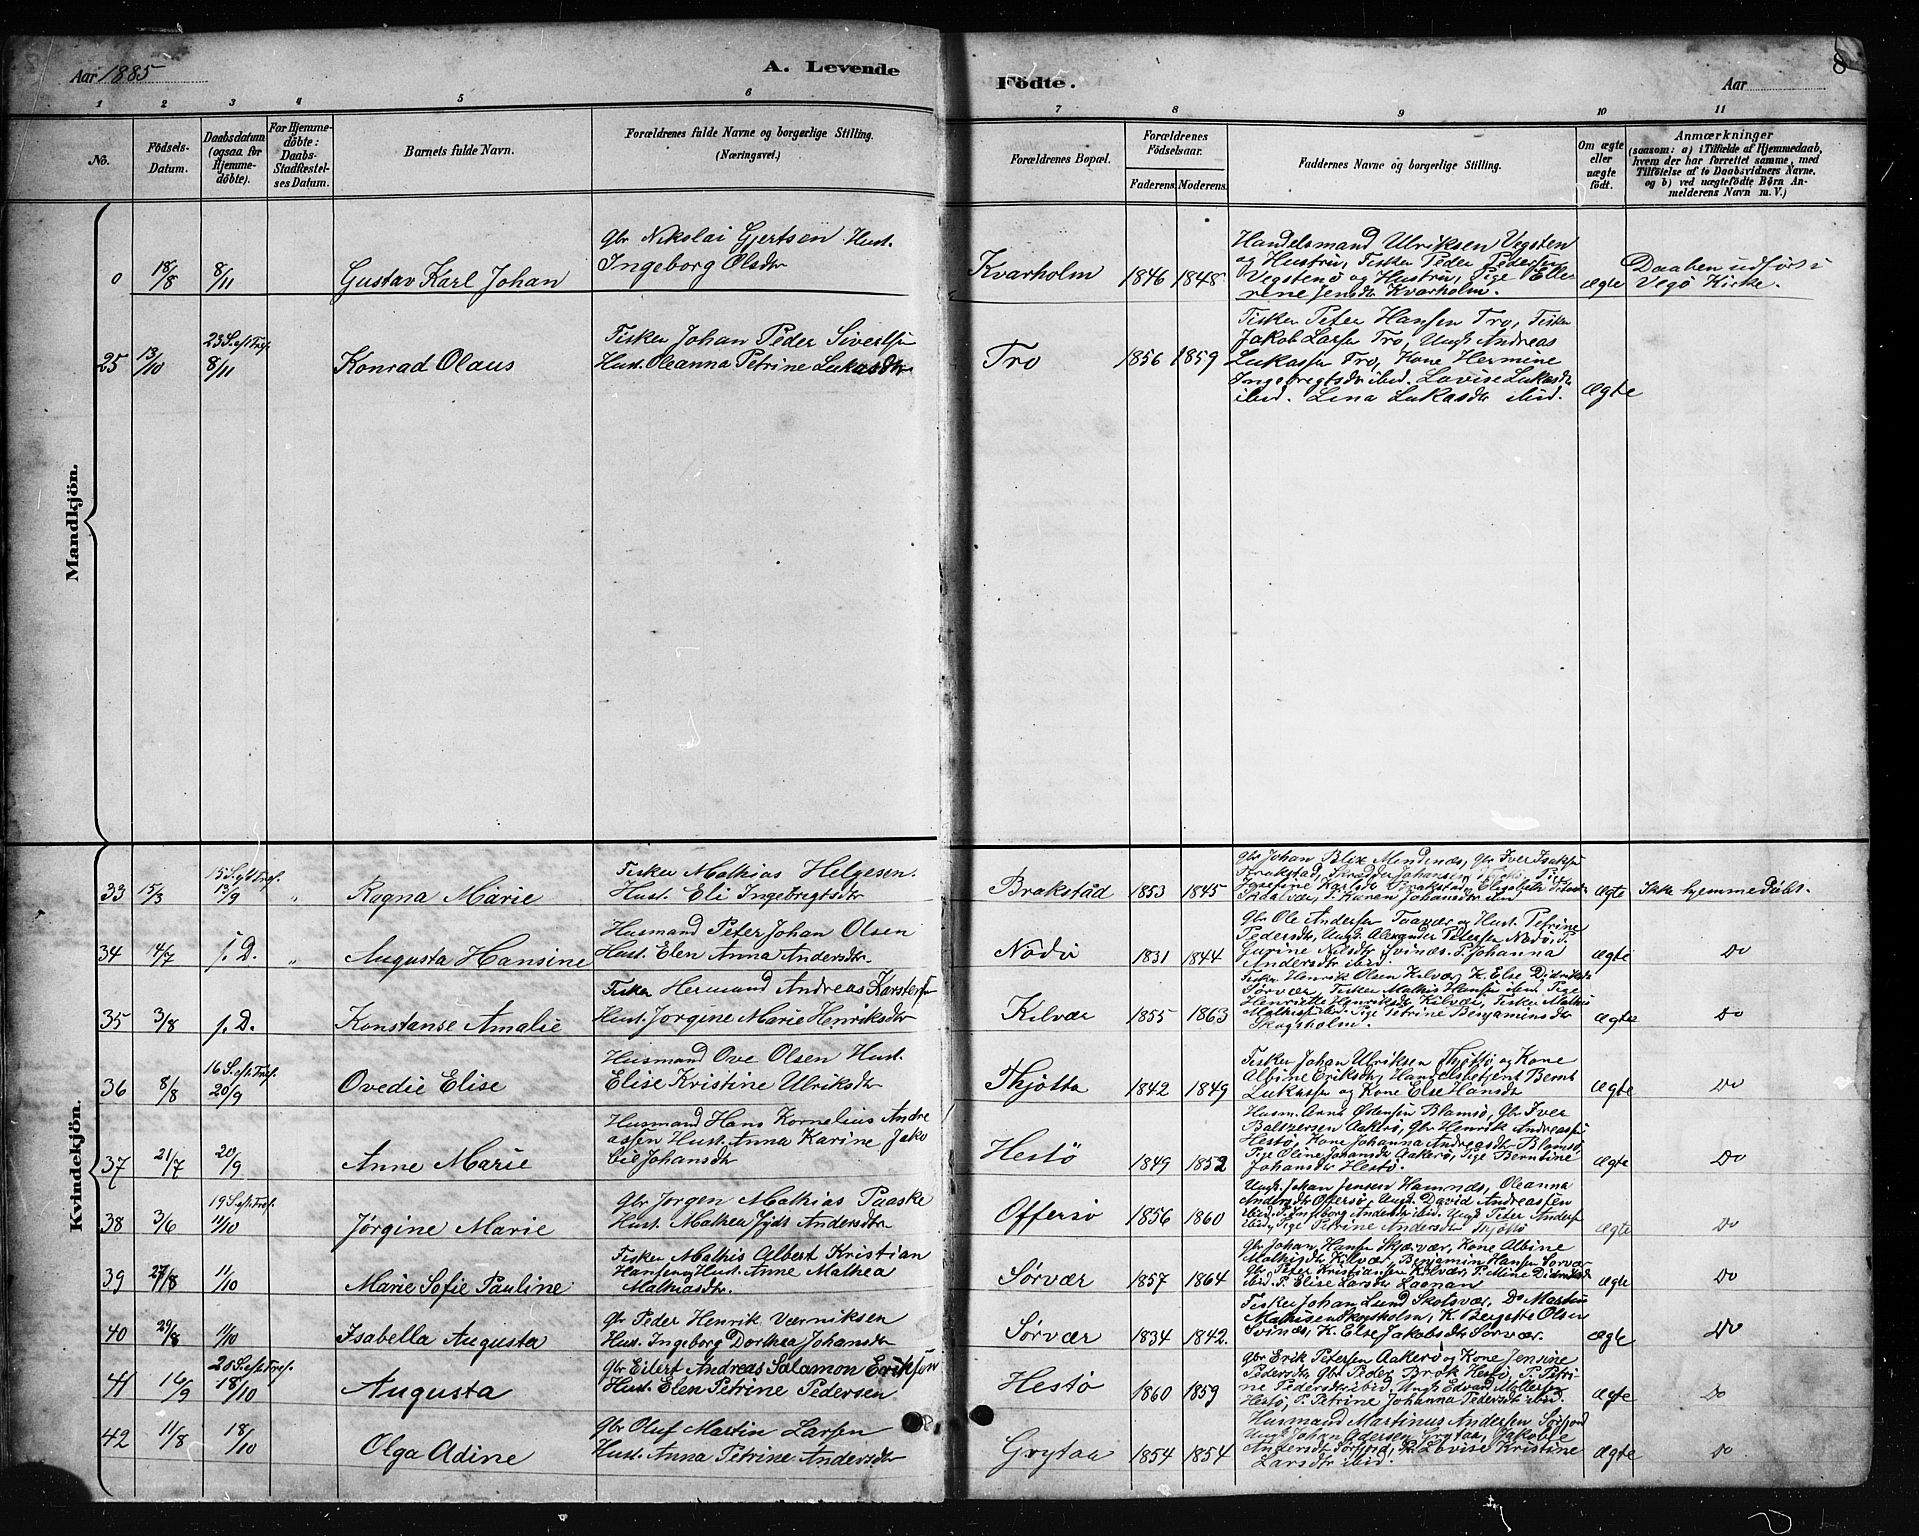 Aar 1885
A. Levende
Födte.
Aar
8
1 2 3 4 5 6 7 8 9 10 11
No.
Födsels-
Datum.
Daabsdatum
(ogsaa for
Hjemme-
döbte).
For Hjemme-
döbte:
Daabs-
Stadfæstel-
ses Datum.
Barnets fulde Navn.
Forældrenes fulde Navne og borgerlige Stilling.
(Næringsvei.)
Forældrenes Bopæl.
Forældrenes
Födselsaar.
Faderens. Moderens.
Faddernes Navne og borgerlige Stilling.
Om ægte
eller
uægte
födt.
Anmærkninger
(saasom: a) i Tilfælde af Hjemmedaab,
hvem der har forrettet samme, med
Tilföielse af to Daabsvidners Navne.
og b) ved uægtefödte Börn An-
melderens Navn m. V.)
Mandkjön.
0 18/8 8/11 Gustav Karl Johan
Gbr Nikolai Gjertsen Hust.
Ingeborg Olsdtr
Kvarholm 1846 1848
Handelsmand Ulriksen Vegsten
og Hustru, Fisker Peder Pedersen
Vegstenö og Hustru, Pige Elle-
rine Jensdtr Kvarholm.
ægte
Daaben udført i
Vegö Kirke.
25 13/10 23 S. eft Tref. 8/11 Konrad Olaus
Fisker Johan Peder Sivertsen
Hust. Oleanna Petrine Lukasdtr
Tro 1856 1859
Fisker Peter Hansen Tro, Fisker
Jakob Larsen Tro, Ungk. Andreas
Lukassen Tro, Kone Hermine
Ingebregtsdtr ibid. Lovise Lukasdtr
ibid. Lina Lukasdtr ibid.
ægte
Kvindekjön.
33 15/3 15 S. eft Tref. 13/9 " Ragna Marie
Fisker Mathias Helgesen.
Hust. Eli Ingebregtsdtr
Brakstad 1853 1845
Gbr Johan Blix Mindenæs, Gbr Iver Isaksen
Josefine Karlsdtr Brakstad, Elisabeth
Skaalvær, P. Karen Johansdtr ibid
ægte Ikke hjemmedöbt.
34 14/7 s. D. " Augusta Hansine
Husmand Peter Johan Olsen
Hust. Elen Anna Andersdtr.
Nödö 1831 1844
Gbr Ole Andersen Taavær og Hust. Petrine
Pedersdtr, Ungk. Alexander Petersen Nödö, P.
Gurine Nilsdtr Svinæs. P. Johanna
Andersdtr ibid.
ægte Do
35 3/8 s. D. Konstanse Amalie
Fisker Hermand Andreas Karstensen
Hust. Jørgine Marie Henriksdtr
Kilvær 1855 1863
Fisker Henrik Olsen Kilvær, K. Else Didriksdtr
Sørvær, Fisker Mathis Hansen ibid. Pige
Henriette Henriksdtr Kilvær, Fisker Mathis
Mathisen ibid. Pige Petrine Benjaminsdtr
Skogsholm.
ægte Do
36 8/8 16 S. eft Tref. 20/9 Ovedie Elise
Husmand Ove Olsen Hust.
Elise Kristine Ulriksdtr
Thjøtta 1842 1849
Fisker Johan Ulriksen Thjøttö og Kone
Albine Eriksdtr, Handelsbetjent Bernt
Lukassen og Kone Else Hansdtr
ægte Do
37 21/7 20/9 Anne Marie
Husmand Hans Kornelius Andre
assen Hust. Anna Karine Jako
bie Johansdtr
Hestö 1849 1852
Husm. Arnt Ødensen Blamsö, Gbr Iver
Baltzersen Aakerö, Gbr Henrik Andreassen
Hestö, Kone Johanna Andreasdtr Blamsö,
Pige Oline Johansdtr Aakerö, Pige Berntine
Johansdtr Hestö.
ægte Do
38 3/6 19 S. eft. Tref. 11/10 Jørgine Marie
Gbr Jørgen Mathias Paaske
Hust. Mathea Andersdtr
Offersö 1856 1860
Ungk. Johan Jensen Hamnæs, Oleanna
Andersdtr Offersö, Ungk. David Andreassen
ibid. P. Ingeborg Andersdtr ibid. Ungk Peter Andersen
ibid, Pige Petrine Andersdtr Thjøttö
ægte Do
39 27/8 11/10 Marie Sofie Pauline
Fisker Mathis Albert Kristian
Hansen og Hust. Anne Mathea
Mathiasdtr.
Sørvær 1857 1864
Gbr Johan Hansen Skjærvær, Kone Albine
Mathisdtr Kilvær, Benjamin Hansen Sørvær
Gbr Peter Kristiansen Kilvær, P. Petrine Didriksdtr
ibid. P. Elise Larsdtr Laanan
ægte Do
40 29/8 11/10 Isabella Augusta
Gbr Peder Henrik Værniksen
Hust. Ingeborg Dorthea Johansdtr
Sørvær 1834 1842.
Fisker Johan Lund Skotsvær, Do Martin
Mathisen Skogsholm, K. Bergette Olsen
Svinæs, K. Else Jakobsdtr Sørvær.
ægte Do
41 16/9 20 S. eft. Tref. 18/10 Augusta
Gbr Eilert Andreas Salamon Eriksen
Hust. Elen Petrine Pedersen
Hestö 1860 1859
Gbr Erik Petersen Aakerö og Kone Jensine
Pedersdtr, Gbr Peder Brok Hestö, P. Petri-
ne Pedersdtr ibid. Ungk Edvard Möllersen
Hestö, P. Petrine Johanna Pedersdtr ibid.
ægte Do
42 11/8 18/10 Olga Adine
Gbr Oluf Martin Larsen
Hust. Anna Petrine Andersdtr
Grytaa 1854 1854
Husmand Martinus Andersen Sørfjord
Ungk Johan Adersen Grytaa, Jakobie
Andersdtr Sørfjord, P. Lovise Kristine
Larsdtr ibid.
ægte Do